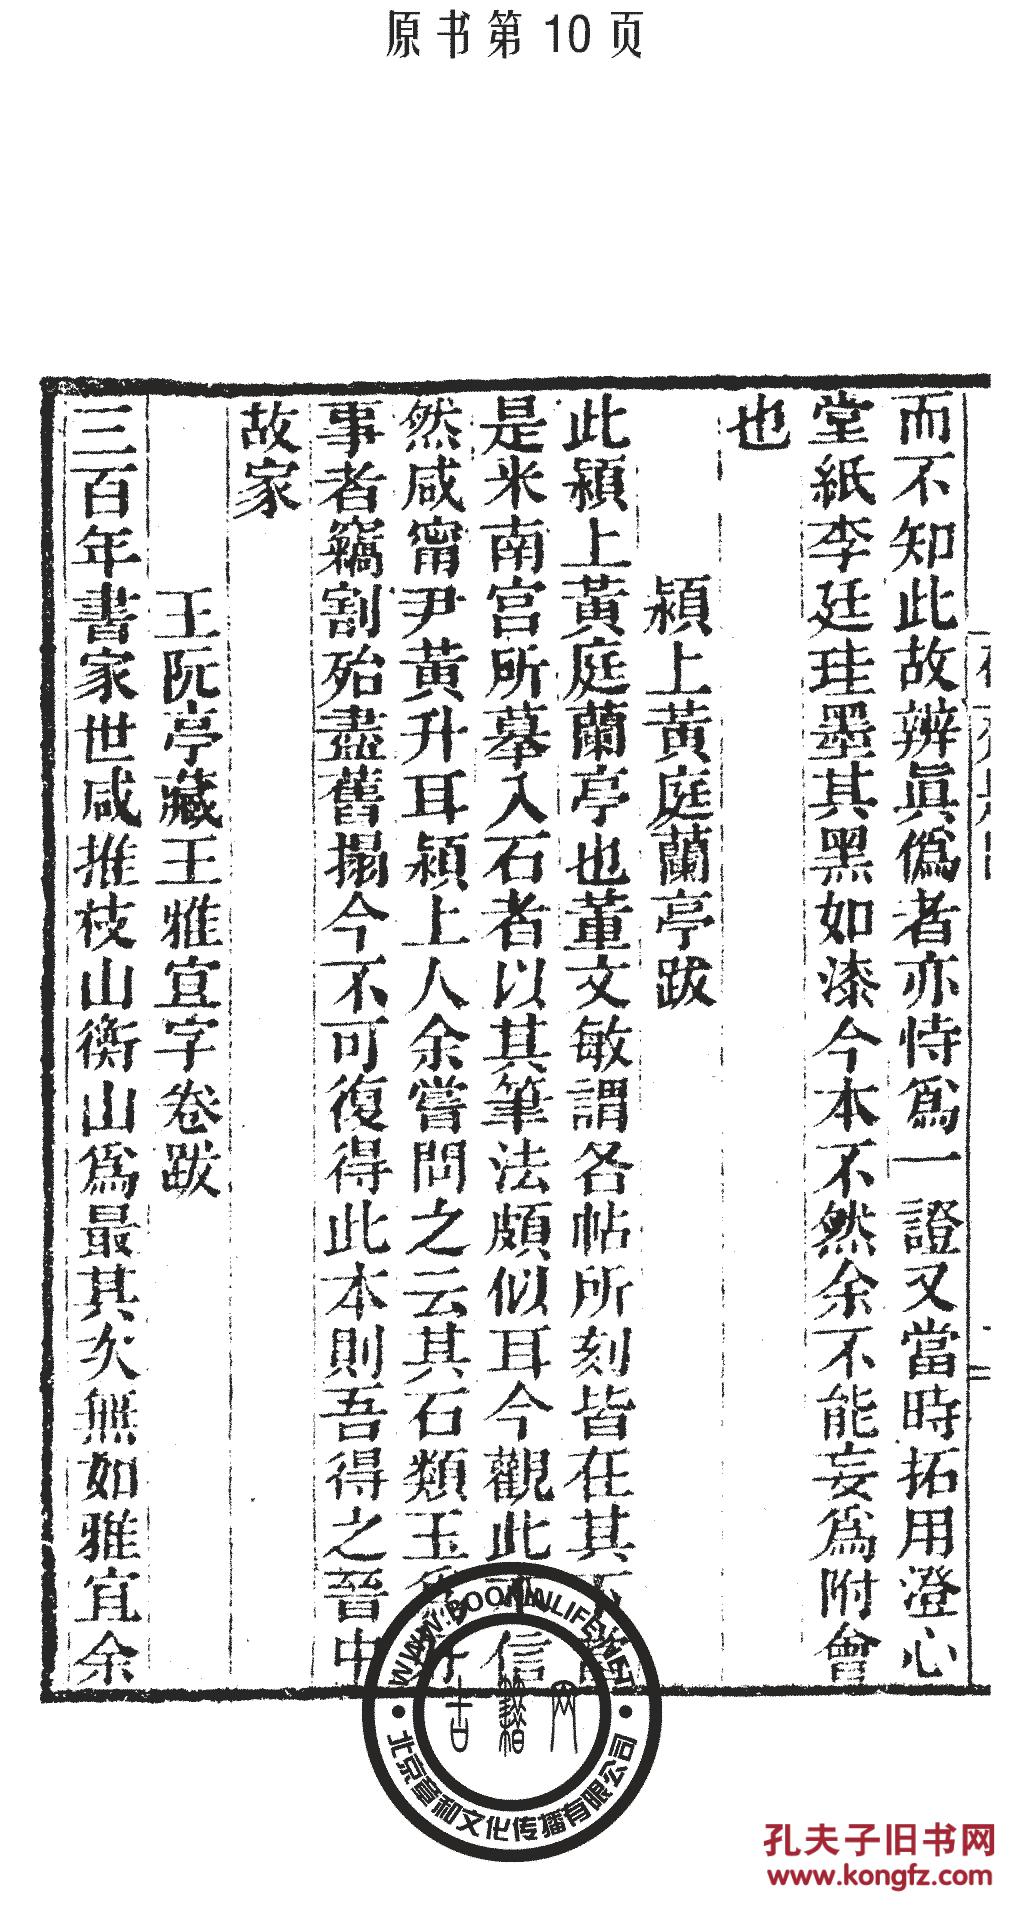 原书第10页
而不知此故辨眞僞者亦恃爲一證又當時拓用澄心
堂紙李廷珪墨其黑如漆今本不然余不能妄爲附會
也
潁上黃庭蘭亭跋
此潁上黃庭蘭亭也董文敏謂各帖所刻皆在其下當
是米南宫所摹入石者以其筆法頗似耳今觀此信
然咸甯尹黃升耳潁上人余嘗問之云其石類玉
事者竊割殆盡舊搨今不可復得此本則吾得之晉中
故家
王阮亭藏王雅宜字卷跋
三百年書家世咸推枝山衡山爲最其次無如雅宜余
WWW.BOOKINLIFE.NET
古籍网
北京章和文化传播有限公司
孔夫子旧书网
www.kongfz.com